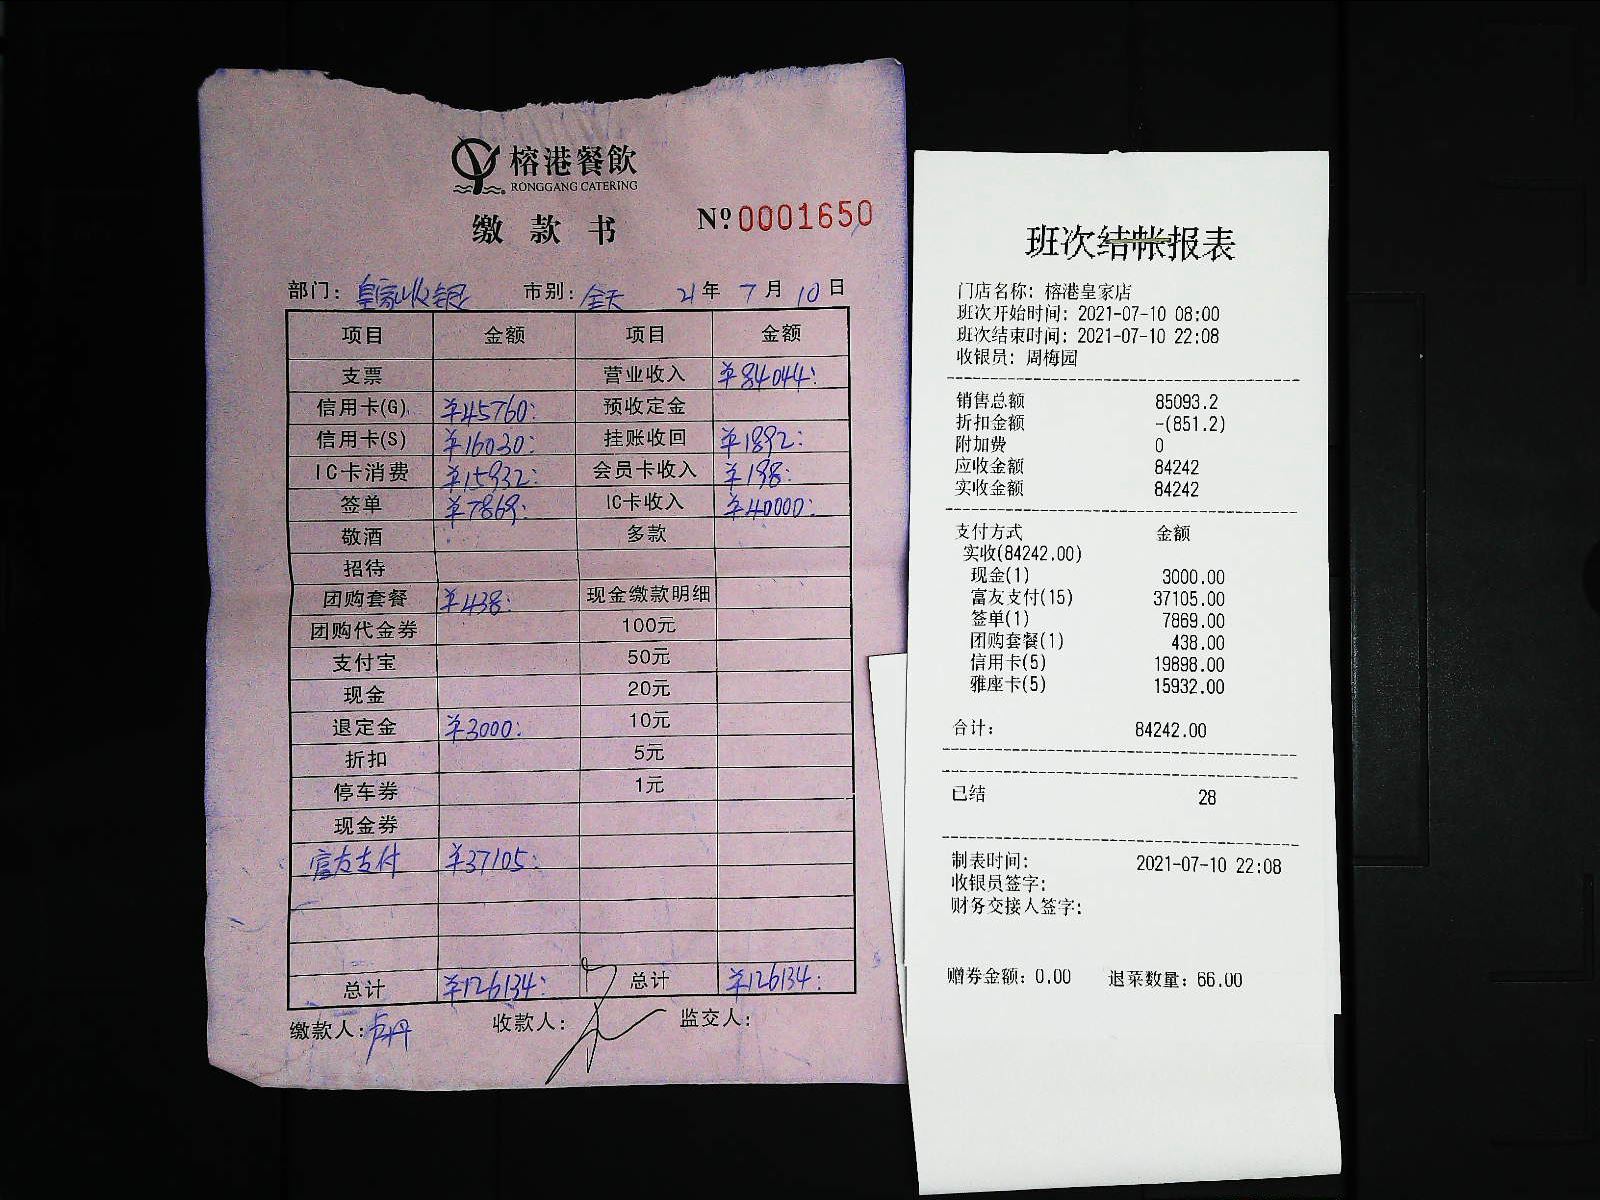 榕港餐飲
RONGGANG CATERING
缴款书 Nº0001650
部门：皇家收银 市别：全天 21年 7月 10日
项目 金额 项目 金额
支票 营业收入 ¥84044:
信用卡(G) ¥45760: 预收定金
信用卡(S) ¥16030: 挂账收回 ¥1892:
IC卡消费 ¥15932: 会员卡收入 ¥198:
签单 ¥7869: IC卡收入 ¥40000:
敬酒 多款
招待
团购套餐 ¥438: 现金缴款明细
团购代金券 100元
支付宝 50元
现金 20元
退定金 ¥3000: 10元
折扣 5元
停车券 1元
现金券
富友支付 ¥37105:
总计 ¥126134: 总计 ¥126134:
缴款人：卢丹 收款人： 监交人：
班次结帐报表
门店名称：榕港皇家店
班次开始时间：2021-07-10 08:00
班次结束时间：2021-07-10 22:08
收银员：周梅园
销售总额 85093.2
折扣金额 -(851.2)
附加费 0
应收金额 84242
实收金额 84242
支付方式 金额
实收(84242.00)
现金(1) 3000.00
富友支付(15) 37105.00
签单(1) 7869.00
团购套餐(1) 438.00
信用卡(5) 19898.00
雅座卡(5) 15932.00
合计： 84242.00
已结 28
制表时间： 2021-07-10 22:08
收银员签字：
财务交接人签字：
赠券金额：0.00 退菜数量：66.00